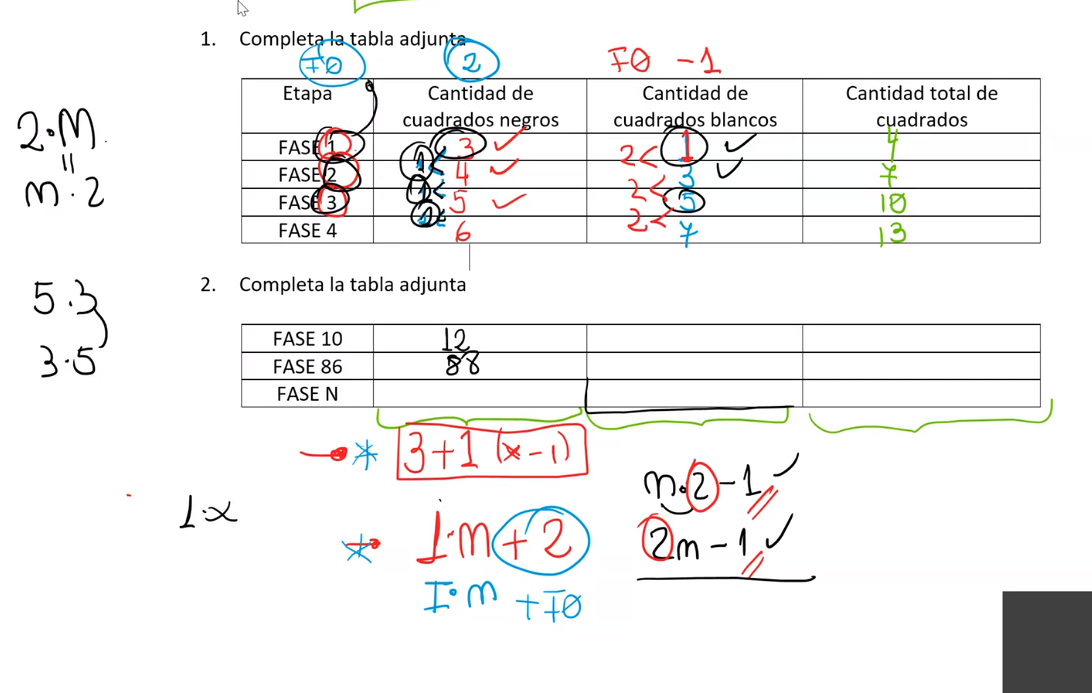 1. Completa la tabla adjunta
F0 2 F0 -1
Etapa Cantidad de cuadrados negros Cantidad de cuadrados blancos Cantidad total de cuadrados
FASE 1 3 1 4
1 2
FASE 2 4 3 7
1 2
FASE 3 5 5 10
1 2
FASE 4 6 7 13
2·M
=
m·2
2. Completa la tabla adjunta
5·3
3·5
FASE 10 12
FASE 86 88
FASE N
* 3+1 (x-1)
m·2-1
1·x
* 1·m+2
2m-1
I·m +F0